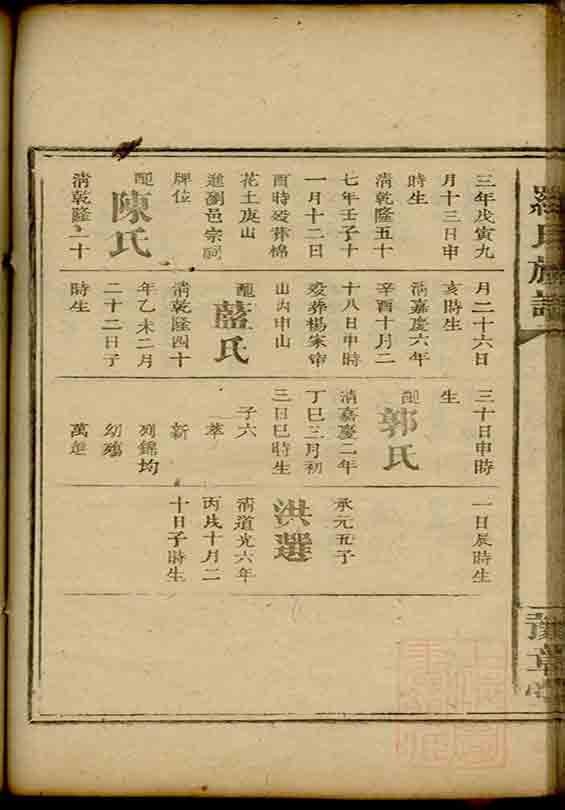 羅氏族譜
豫章堂
三年戊寅九
月十三日申
時生
清乾隆五十
七年壬子十
一月十二日
酉時歿葬棉
花土庚山
進瀏邑宗祠
牌位
配
陳氏
清乾隆二十
月二十六日
亥時生
清嘉慶六年
辛酉十月二
十八日申時
歿葬楊朱帝
山內申山
配
藍氏
清乾隆四十
年乙未二月
二十二日子
時生
三十日申時
生
配
郭氏
清嘉慶二年
丁巳三月初
三日巳時生
子六
萃
新
列錦均
幼殤
萬進
一日辰時生
承元五子
洪選
清道光六年
丙戌十月二
十日子時生